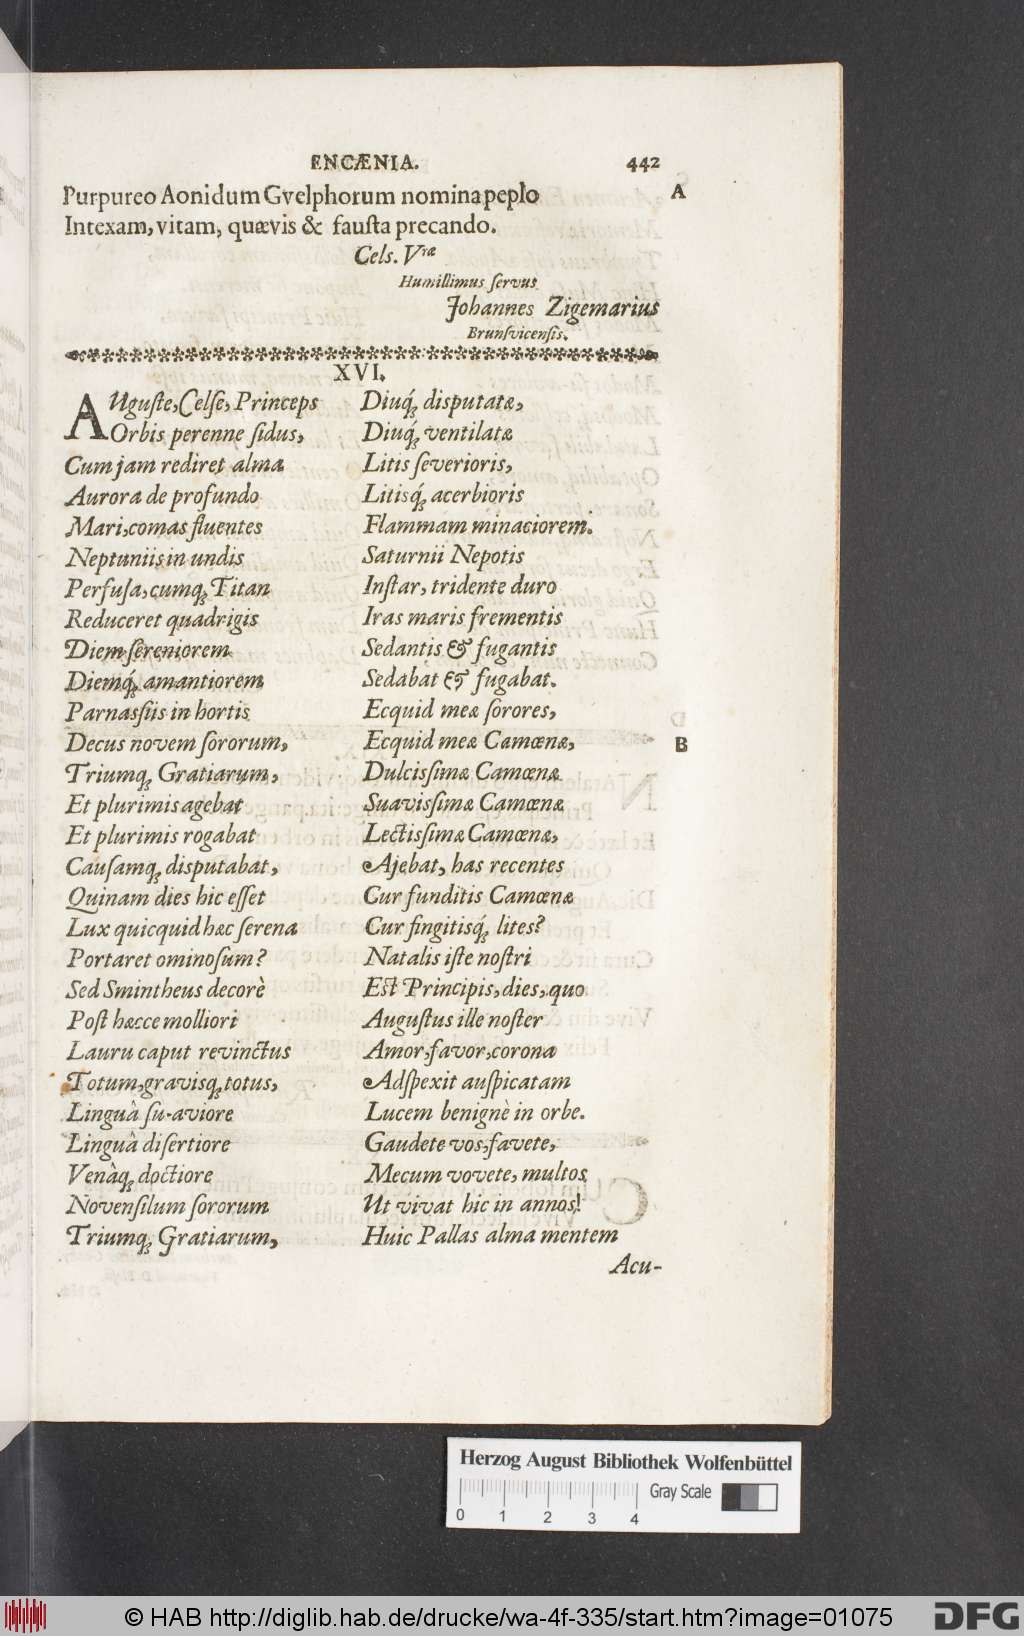 ENCÆNIA. 442
Purpureo Aonidum Gvelphorum nomina peplo A
Intexam, vitam, quævis & fausta precando.
Cels. Vræ
Humillimus servus
Johannes Zigemarius
Brunsvicensis.
XVI.
AUguste, Celse, Princeps
Orbis perenne sidus,
Cum jam rediret alma
Aurora de profundo
Mari, comas fluentes
Neptuniis in undis
Perfusa, cumq; Titan
Reduceret quadrigis
Diem sereniorem
Diemq́; amantiorem
Parnassiis in hortis
Decus novem sororum,
Triumq; Gratiarum,
Et plurimis agebat
Et plurimis rogabat
Causamq; disputabat,
Quinam dies hic esset
Lux quicquid hæc serena
Portaret ominosum?
Sed Smintheus decorè
Post hæcce molliori
Lauru caput revinctus
Totum, gravisq; totus,
Linguâ su-aviore
Linguâ disertiore
Venâq; doctiore
Novensilum sororum
Triumq; Gratiarum,
Diuq́; disputatæ,
Diuq́; ventilatæ
Litis severioris,
Litisq́; acerbioris
Flammam minaciorem.
Saturnii Nepotis
Instar, tridente duro
Iras maris frementis
Sedantis & fugantis
Sedabat & fugabat.
Ecquid meæ sorores,
Ecquid meæ Camœnæ, B
Dulcissimæ Camœnæ
Suavissimæ Camœnæ
Lectissimæ Camœnæ,
Ajebat, has recentes
Cur funditis Camœnæ
Cur fingitisq́; lites?
Natalis iste nostri
Est Principis, dies, quo
Augustus ille noster
Amor, favor, corona
Adspexit auspicatam
Lucem benignè in orbe.
Gaudete vos, favete,
Mecum vovete, multos
Ut vivat hic in annos!
Huic Pallas alma mentem
Acu-
Herzog August Bibliothek Wolfenbüttel
Gray Scale
0 1 2 3 4
© HAB http://diglib.hab.de/drucke/wa-4f-335/start.htm?image=01075
DFG